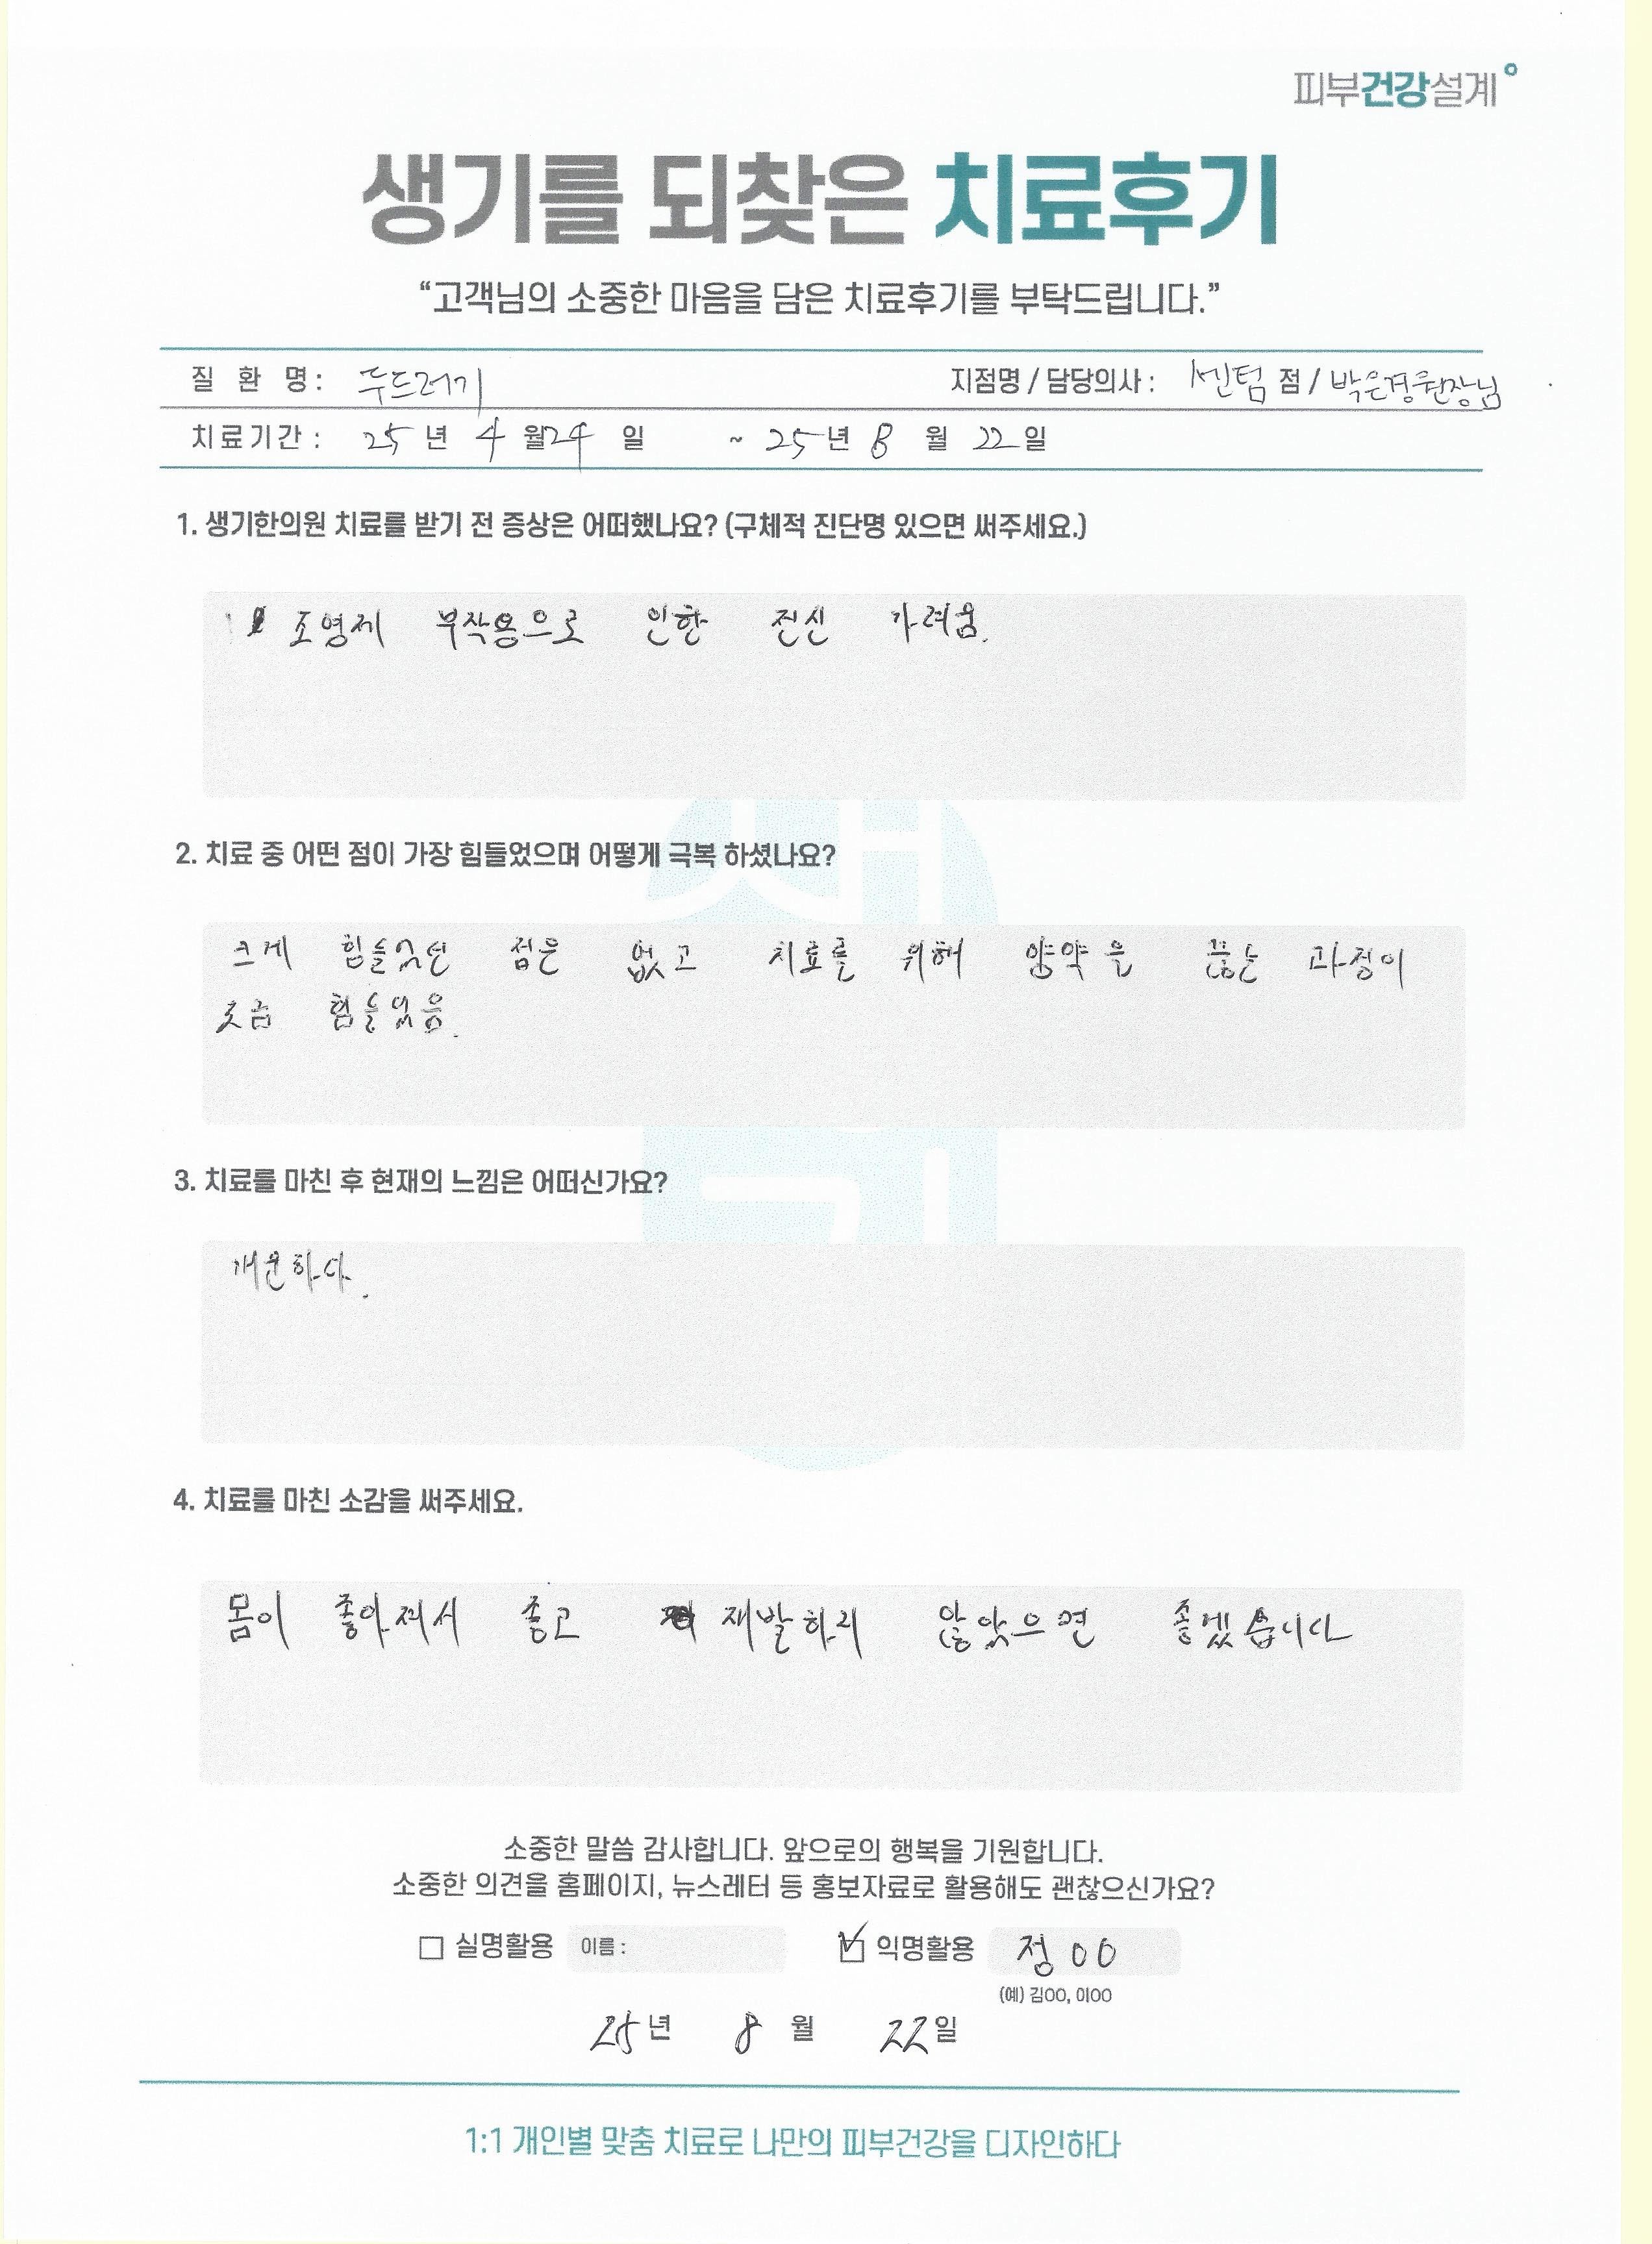 피부건강설계
생기를 되찾은 치료후기
“고객님의 소중한 마음을 담은 치료후기를 부탁드립니다.”
질 환 명 : 두드러기 지점명 / 담당의사 : 센텀 점 / 박은경원장님
치료기간 : 25 년 4 월 24 일 ~ 25 년 8 월 22 일
1. 생기한의원 치료를 받기 전 증상은 어떠했나요? (구체적 진단명 있으면 써주세요.)
조영제 부작용으로 인한 전신 가려움.
2. 치료 중 어떤 점이 가장 힘들었으며 어떻게 극복 하셨나요?
크게 힘들었던 점은 없고 치료를 위해 양약을 끊는 과정이
조금 힘들었음.
3. 치료를 마친 후 현재의 느낌은 어떠신가요?
개운하다.
4. 치료를 마친 소감을 써주세요.
몸이 좋아져서 좋고 재발하지 않았으면 좋겠습니다
소중한 말씀 감사합니다. 앞으로의 행복을 기원합니다.
소중한 의견을 홈페이지, 뉴스레터 등 홍보자료로 활용해도 괜찮으신가요?
실명활용 이름 : 익명활용 정OO
(예) 김OO, 이OO
25 년 8 월 22 일
1:1 개인별 맞춤 치료로 나만의 피부건강을 디자인하다
생기